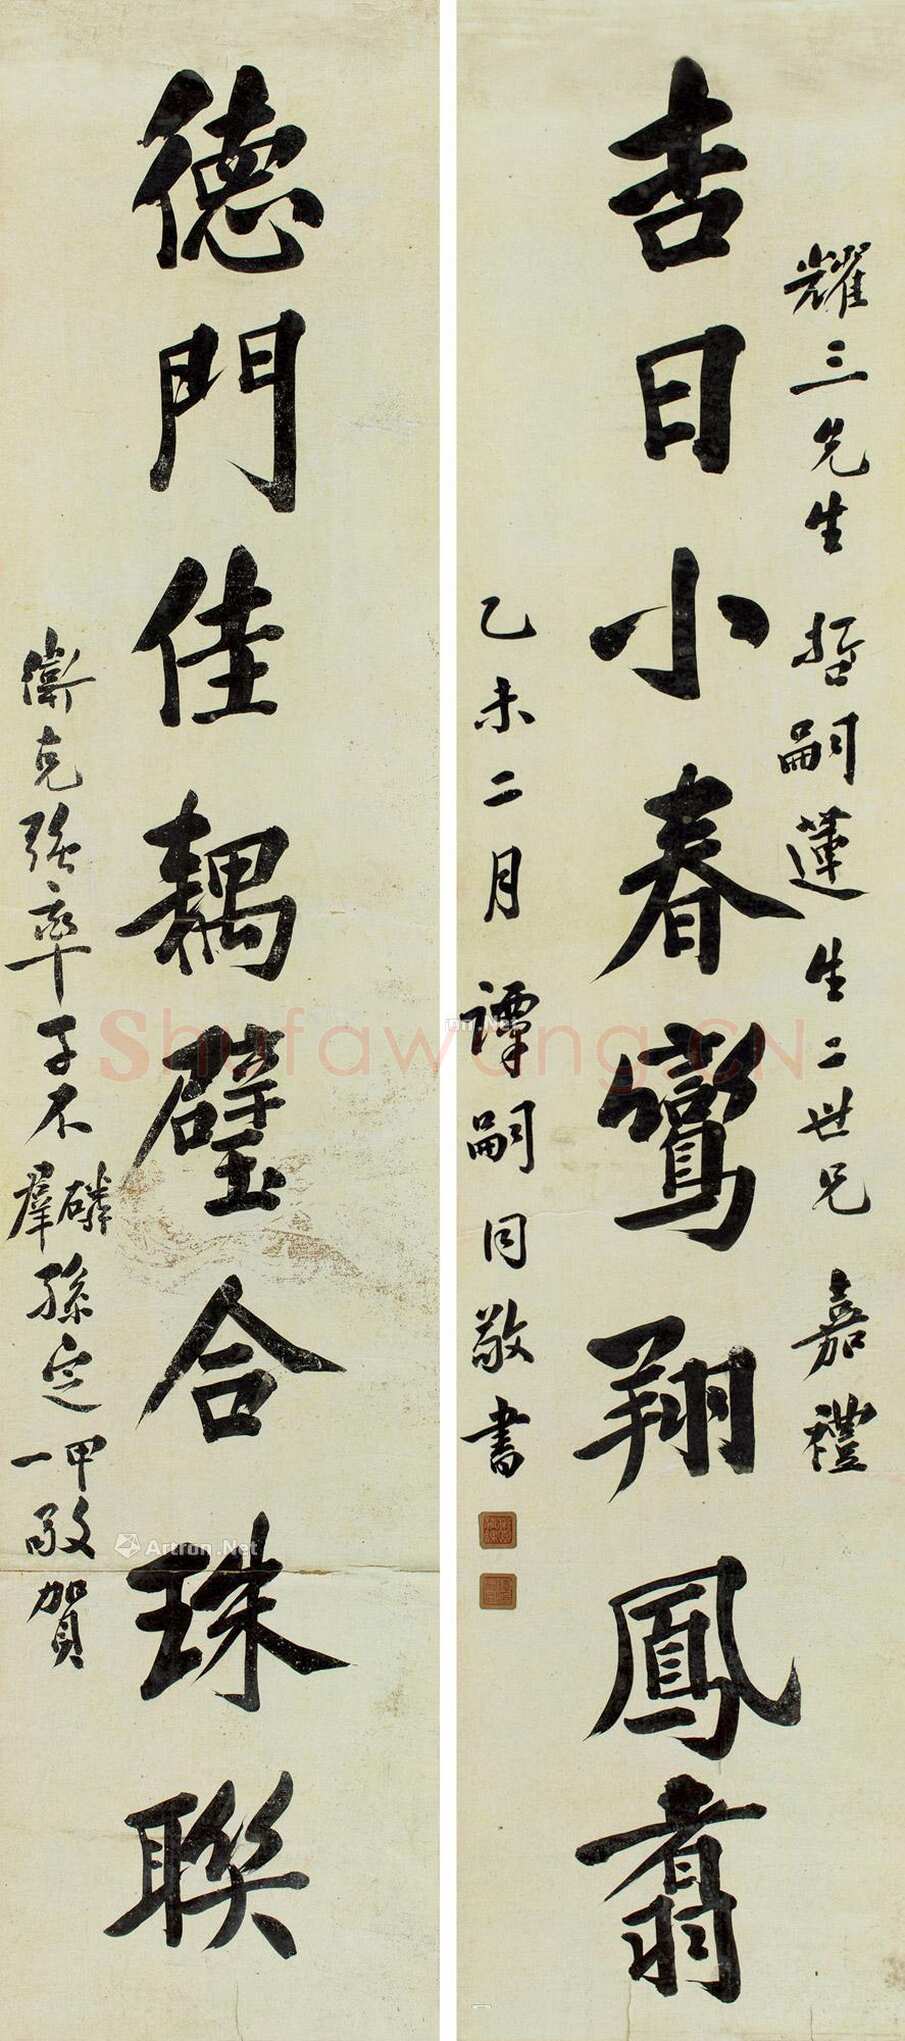 耀三先生哲嗣蓮生二世兄嘉禮
吉日小春鸞翔鳳翥
乙未二月譚嗣同敬書
德門佳耦璧合珠聯
衛克強率子不磷羣孫定一甲敬賀
Shufawang.CN
Artron.Net